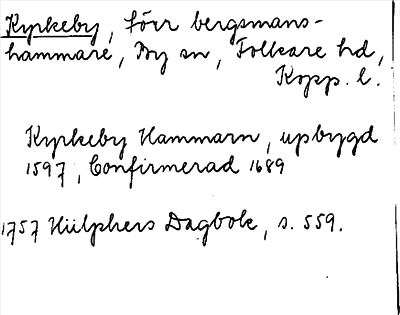 Kyrkeby, förr bergsmans-
hammare, By sn, Folkare hd,
Kopp. l.
Kyrkeby Hammarn, upbygd
1597, Confirmerad 1689
1757 Hülphers Dagbok, s. 559.